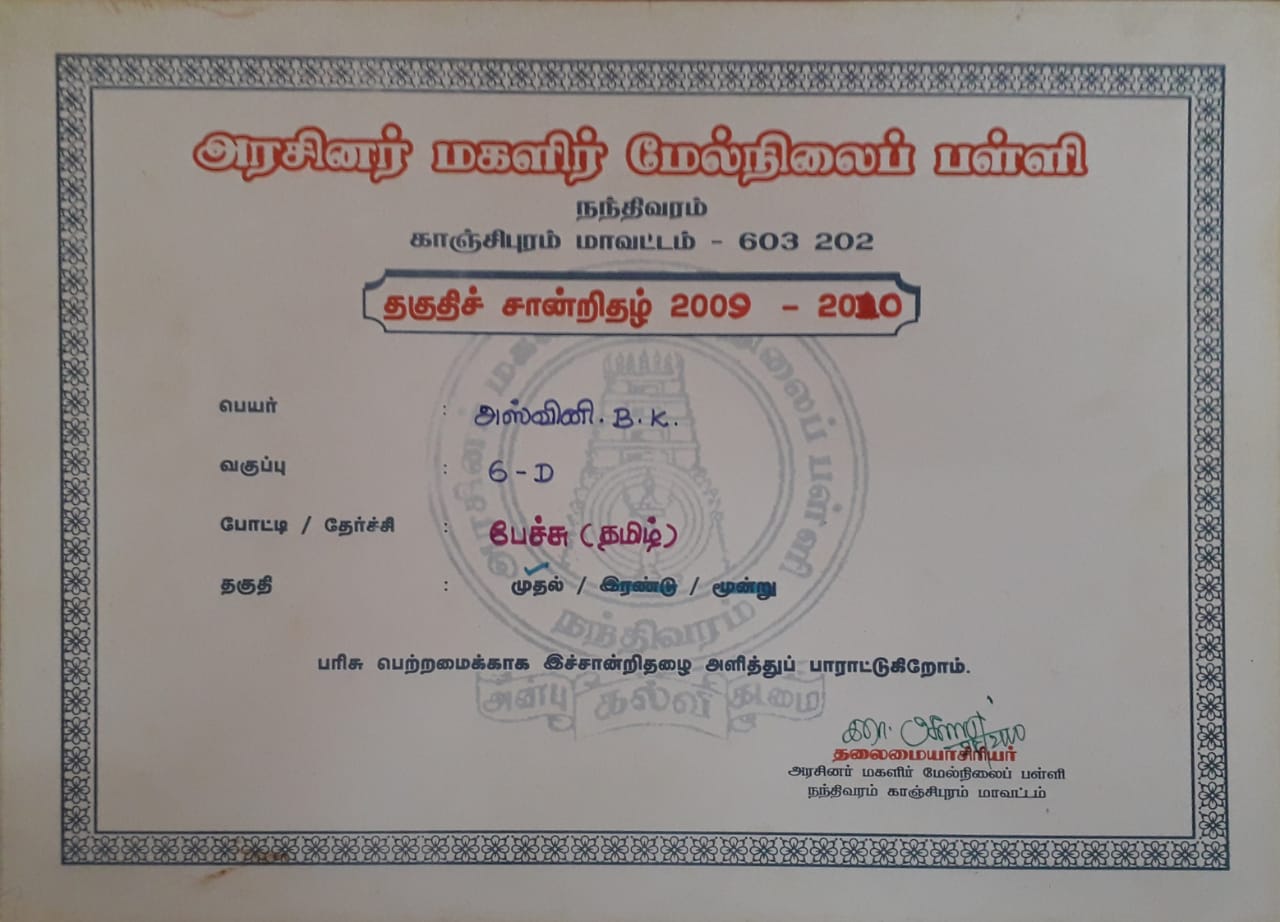 அரசினர் மகளிர் மேல்நிலைப் பள்ளி
நந்திவரம்
காஞ்சிபுரம் மாவட்டம் - 603 202
தகுதிச் சான்றிதழ் 2009 - 2010
பெயர் : அஸ்வினி. B. K.
வகுப்பு : 6 - D
போட்டி / தேர்ச்சி : பேச்சு (தமிழ்)
தகுதி : முதல் / இரண்டு / மூன்று
நந்திவரம்
பரிசு பெற்றமைக்காக இச்சான்றிதழை அளித்துப் பாராட்டுகிறோம்.
அன்பு கல்வி கடமை
தலைமையாசிரியர்
அரசினர் மகளிர் மேல்நிலைப் பள்ளி
நந்திவரம் காஞ்சிபுரம் மாவட்டம்